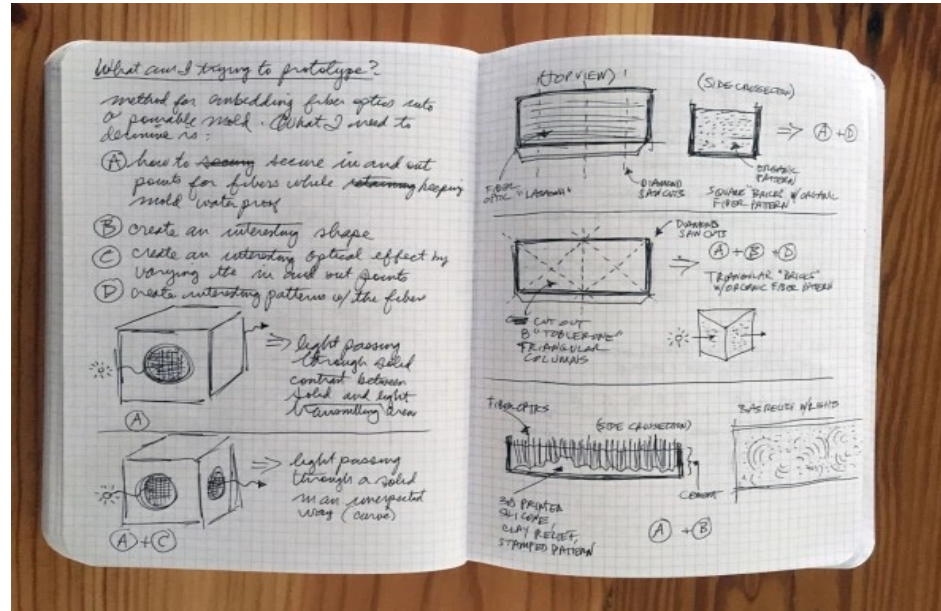 What am I trying to prototype?
method for embedding fiber optics into
a pourable mold. What I need to
determine is:
A how to secure in and out
points for fibers while keeping
mold waterproof
B create an interesting shape
C create an interesting optical effect by
varying the in and out points
D create interesting patterns w/ the fiber
⇒ light passing
through solid
contrast between
solid and light
transmitting area
A
⇒ light passing
through a solid
in an unexpected
way (curve)
A + C
(TOP VIEW)
(SIDE CROSSECTION)
⇒ A + D
FIBER
OPTIC "LASAGNA"
DIAMOND
SAW CUTS
ORGANIC
PATTERN
SQUARE "BRICKS" W/ ORGANIC
FIBER PATTERN
DIAMOND
SAW CUTS
⇒ A + B + D
TRIANGULAR "BRICKS"
W/ ORGANIC FIBER PATTERN
CUT OUT
8 "TOBLERONE"
TRIANGULAR
COLUMNS
FIBER OPTICS
(SIDE CROSSECTION)
BAS RELIEF W/ LIGHTS
CEMENT
3D PRINTER
SILICONE,
CLAY RELIEF,
STAMPED PATTERN
A + B